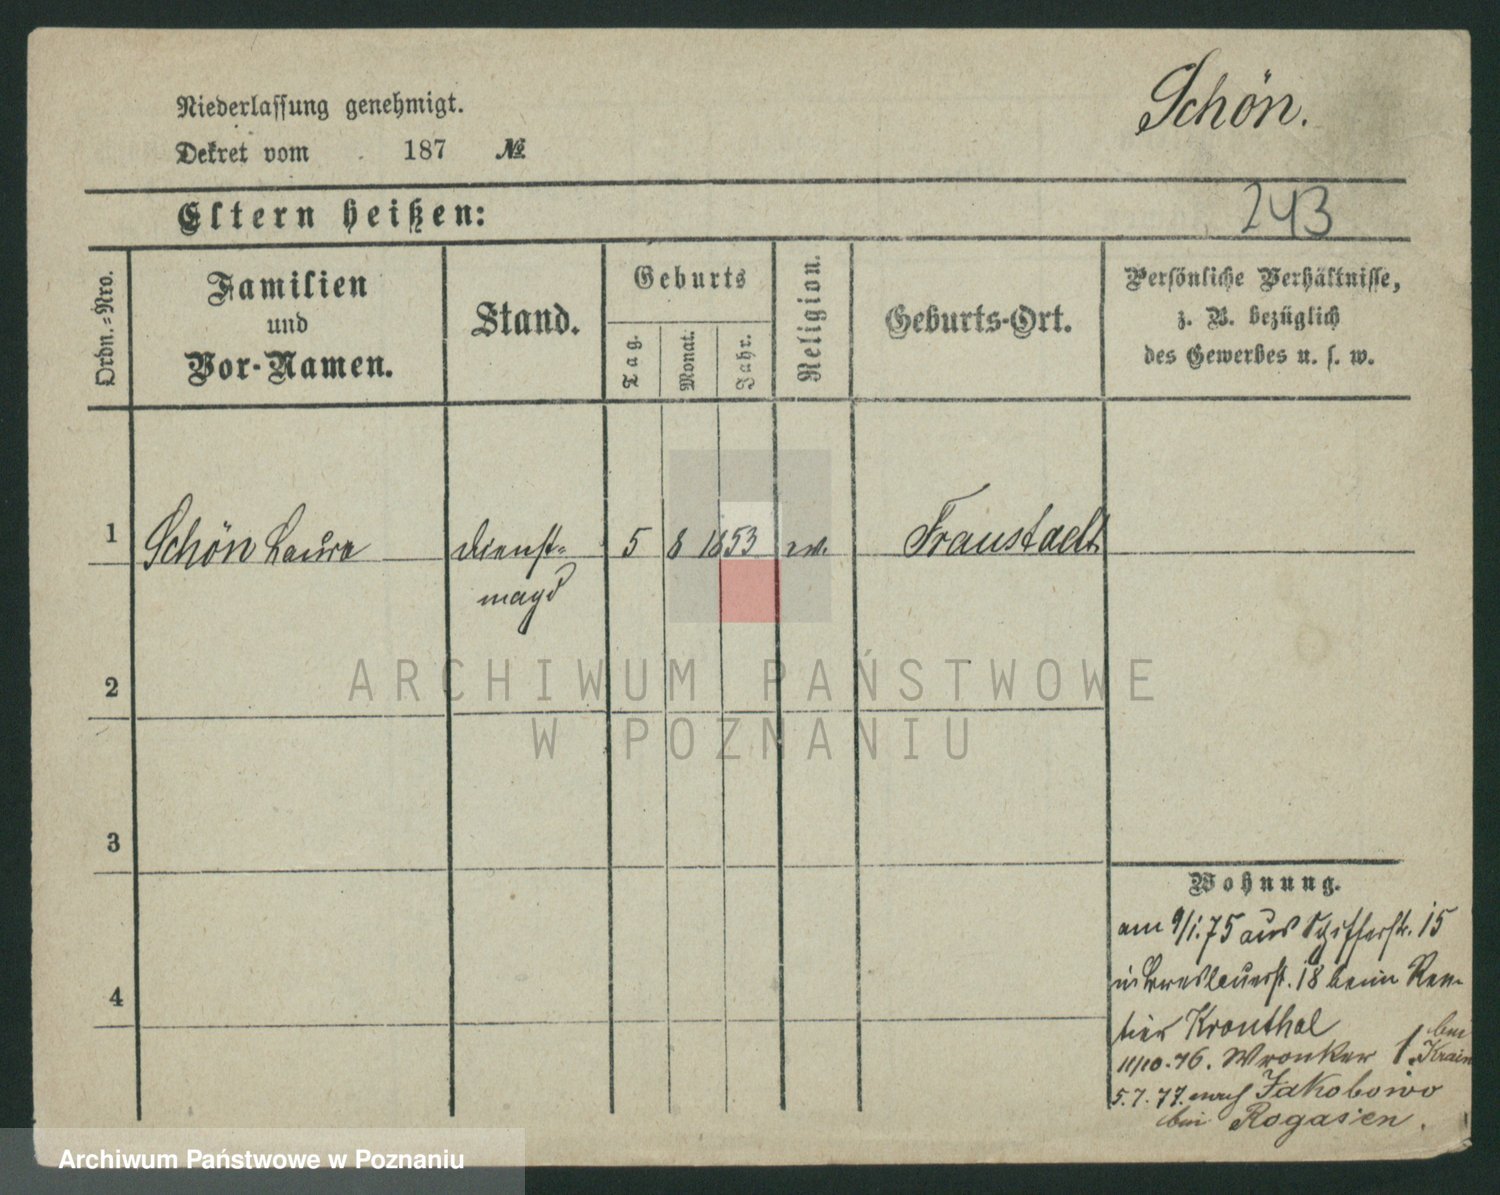 Schön.
Niederlassung genehmigt.
Dekret vom 187 №
243
Eltern heißen:
Ordn.-Nro.
Familien
und
Vor-Namen.
Stand.
Geburts
Tag.
Monat.
Jahr.
Religion.
Geburts-Ort.
Persönliche Verhältnisse,
z. B. bezüglich
des Gewerbes u. s. w.
1 Schön Laura Dienst- 5 8 1853 ev. Fraustadt
magd
2
3
4
Wohnung.
am 9/1.75 aus Schifferstr. 15
in Breslauerst. 18 beim Ren-
tier Kronthal
11/10.76. Wronker 1. bei
Krain
5.7.77. nach Jakobowo
bei Rogasen.
ARCHIWUM PAŃSTWOWE
W POZNANIU
Archiwum Państwowe w Poznaniu